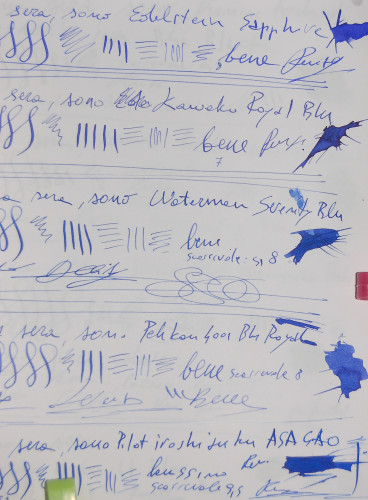 sera, sono Edelstein Sapphire
bene
sera, sono Kaweko Royal Blu
bene
7
a sera, sono Waterman Serenity Blu
bene
scorrevole: 9 8
sera, sono Pelikan 4001 Blu Royal
bene scorrevole 8
Bene
sera, sono Pilot iroshizuku ASA GAO
benissimo
scorrevole 9,5